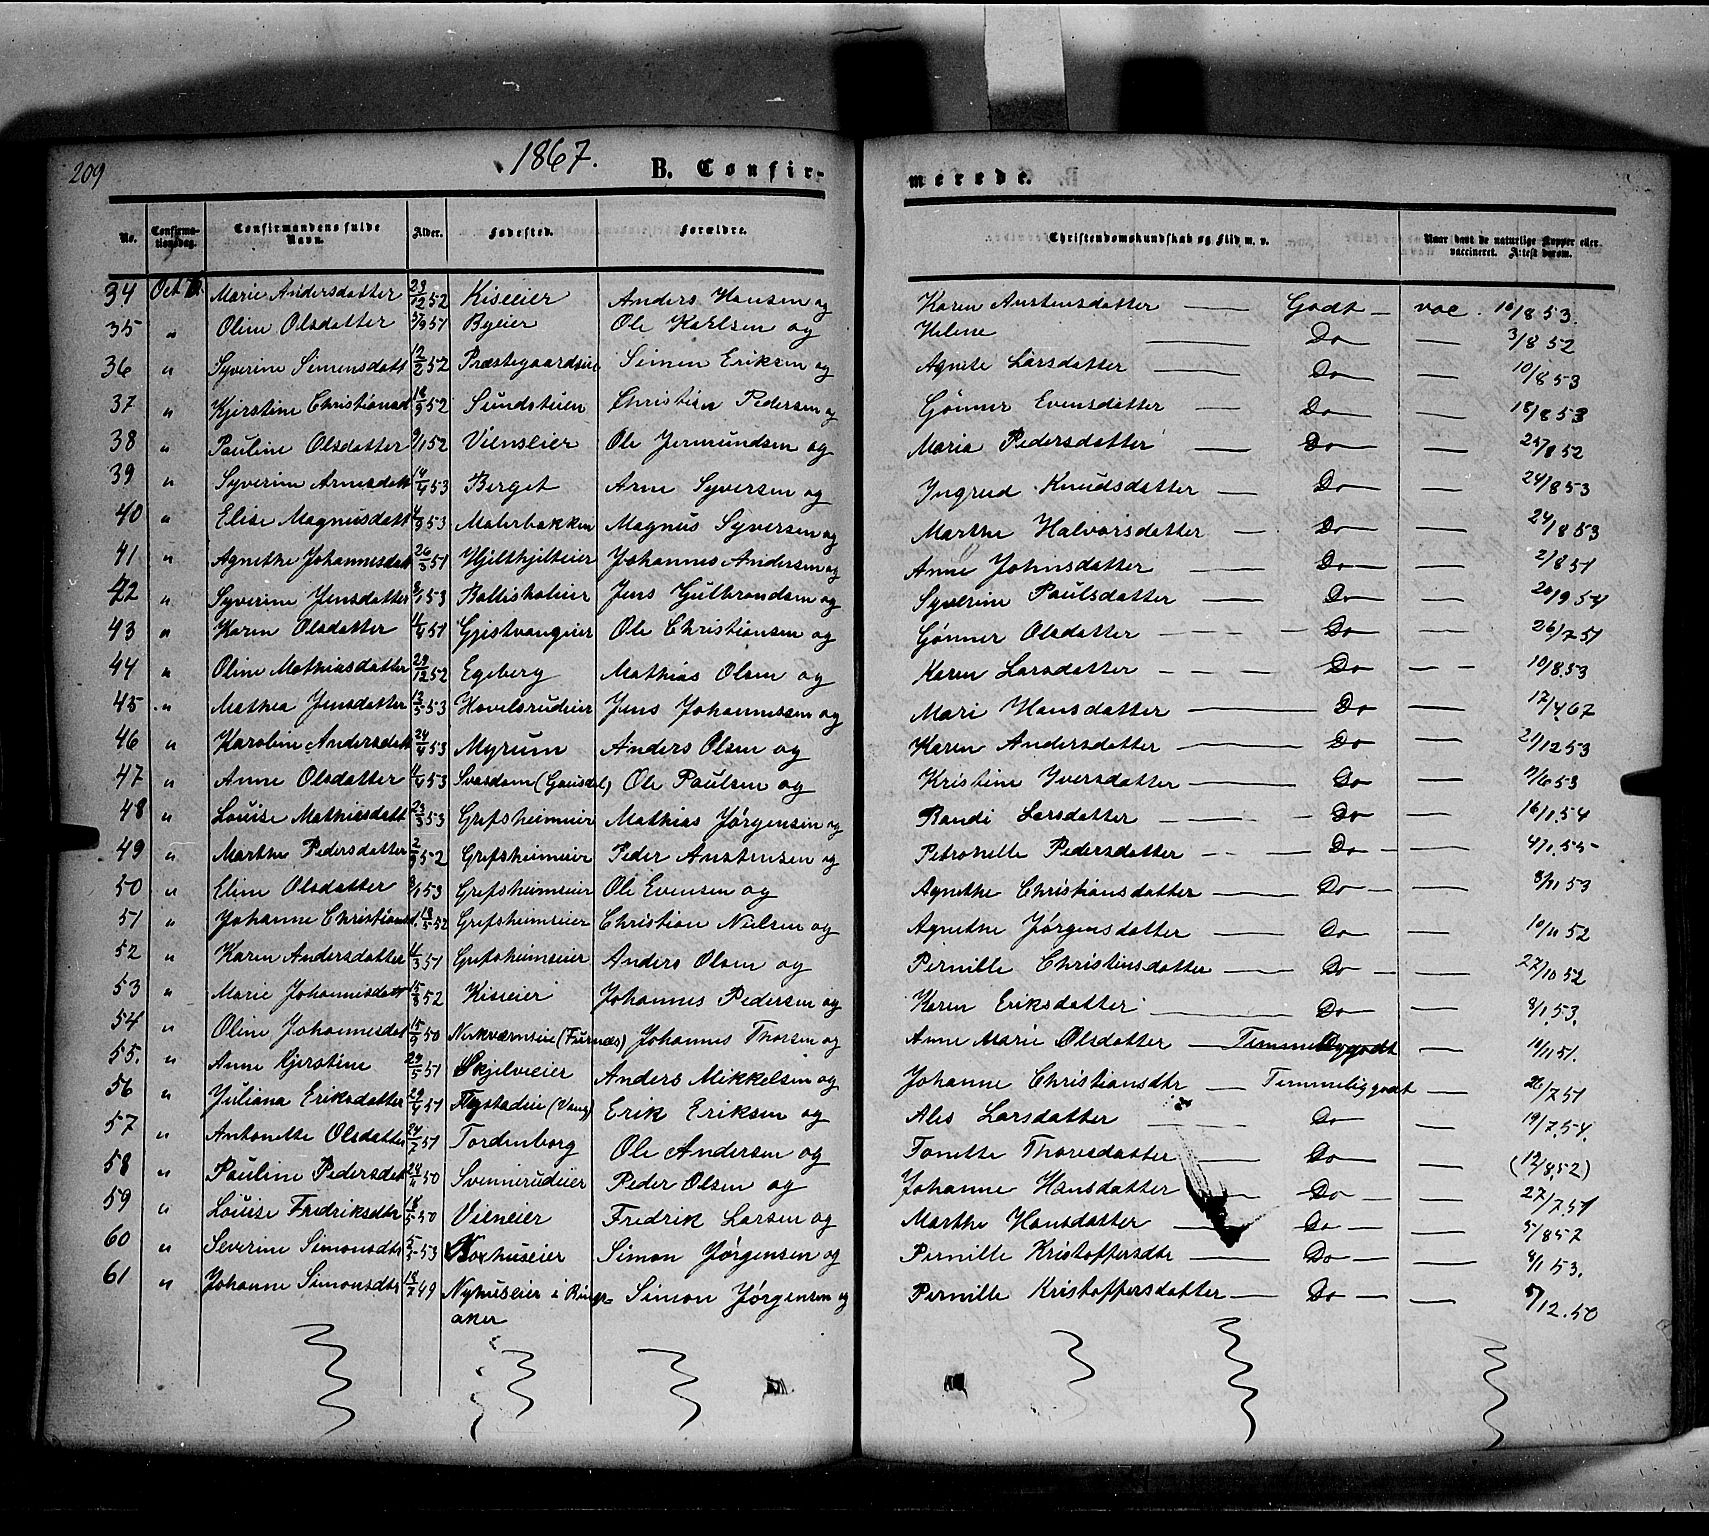 209
1867.
B. Confir-
merede.
No. Confirma-tionsdag. Confirmandens fulde Navn. Alder. Fødested. Forældre. Christendomskundskab og Flid m. v. Naar havt de naturlige Kopper eller vaccineret. Attest derom.
34 Oct Marie Andersdatter 29/12 52 Kiseeier Anders Hansen og Karen Austensdatter — Godt — vac. 10/8 53.
35 " Oline Olsdatter 51 Byeier Ole Karlsen og Helene — Do — 3/8 52
36 " Syverine Simensdatt 12/2 52 Præstegaardseie Simen Eriksen og Agnete Larsdatter — Do — 10/8 53
37 " Kjerstine Christiansd 16/9 52 Sundstuen Christian Pedersen og Gønner Evensdatter — Do — 18/8 53
38 " Pauline Olsdatter 9/1 52 Vienseier Ole Jermundsen og Maria Pedersdatter — Do — 25/8 52
39 " Syverine Arnesdatt 14/4 53 Berget Arne Syversen og Ingrid Knudsdatter — Do — 24/8 53
40 " Elise Magnusdatt 53 Malerbakken Magnus Syversen og Marthe Halvorsdatter — Do — 24/8 53
41 " Agnethe Johannesdatt 26/5 51 Hjelthjelteier Johannes Andersen og Anne Johnsdatter — Do — 2/8 51
42 " Syverine Jensdatter 8/1 53 Ballisholeier Jens Gulbrandsen og Syverine Paulsdatter — Do — 20/9 54
43 " Karen Olsdatter 51 Gjistvangeier Ole Christiansen og Gønner Olsdatter — Do — 26/7 51
44 " Oline Mathiasdatter 29/12 52 Egeberg Mathias Olsen og Karen Larsdatter — Do — 10/8 53
45 " Mathea Jensdatter 12/5 53 Hovelsrudeier Jens Johannessen og Mari Hansdatter — Do — 17/4 67
46 " Karoline Andersdatt 24/4 53 Myrum Anders Olsen og Karen Andersdatter — Do — 21/12 53
47 " Anne Olsdatter 53 Svasdam (Gausdal) Ole Paulsen og Kristine Iversdatter — Do — 53
48 " Louise Mathiasdatt 23/3 53 Grefsheimeier Mathias Jørgensen og Randi Larsdatter — Do — 16/1 54
49 " Marthe Pedersdatter 2/9 52 Grefsheimeier Peder Austensen og Petronelle Pedersdatter — Do — 4/1 55
50 " Eline Olsdatter 8/1 53 Grefsheimseier Ole Evensen og Agnethe Christiansdatter — Do — 8/11 53
51 " Johanne Christiansd. 18/5 52 Grefsheimseier Christian Nielsen og Agnethe Jørgensdatter — Do — 10/11 52
52 " Karen Andersdatter 51 Grefsheimseier Anders Olsen og Pernille Christiansdatter — Do — 27/10 52
53 " Marie Johannesdatt 15/3 52 Kiseeier Johannes Pedersen og Karen Eriksdatter — Do — 8/1 53.
54 " Oline Johannesdat 15/9 50 Nerkværnseie (Furnæs) Johannes Thorsen og Anne Marie Olsdatter — Temmeliggodt — 10/11 51.
55. " Anne Kjerstine 29/5 51 Skjelveeier Anders Mikkelsen og Johanne Christiansdtr — Temmeliggodt — 26/7 51
56 " Juliana Eriksdatter 29/4 51 (Vang) Erik Eriksen og Ales Larsdatter — Do — 19/7 54.
57 " Antonette Olsdatter 24/7 51 Tordenborg Ole Andersen og Tonette Thoresdatter — Do — (12/8 52)
58 " Pauline Pedersdat 24/4 50 Svennerudeier Peder Olsen og Johanne Hansdatter — Do — 27/7 51
59 " Louise Fredriksdtr 18/5 50 Vieneier Fredrik Larsen og Marthe Hansdatter — Do — 5/8 52
60 " Severine Simonsdtr 53 huseier Simon Jørgensen og Pernille Kristoffersdtr — Do — 8/1 53.
61 " Johanne Simonsdtr 18/7 49 Nyhuseier i Rings- Simon Jørgensen og Pernille Kristoffersdatter — Do — 5/12. 50
aker